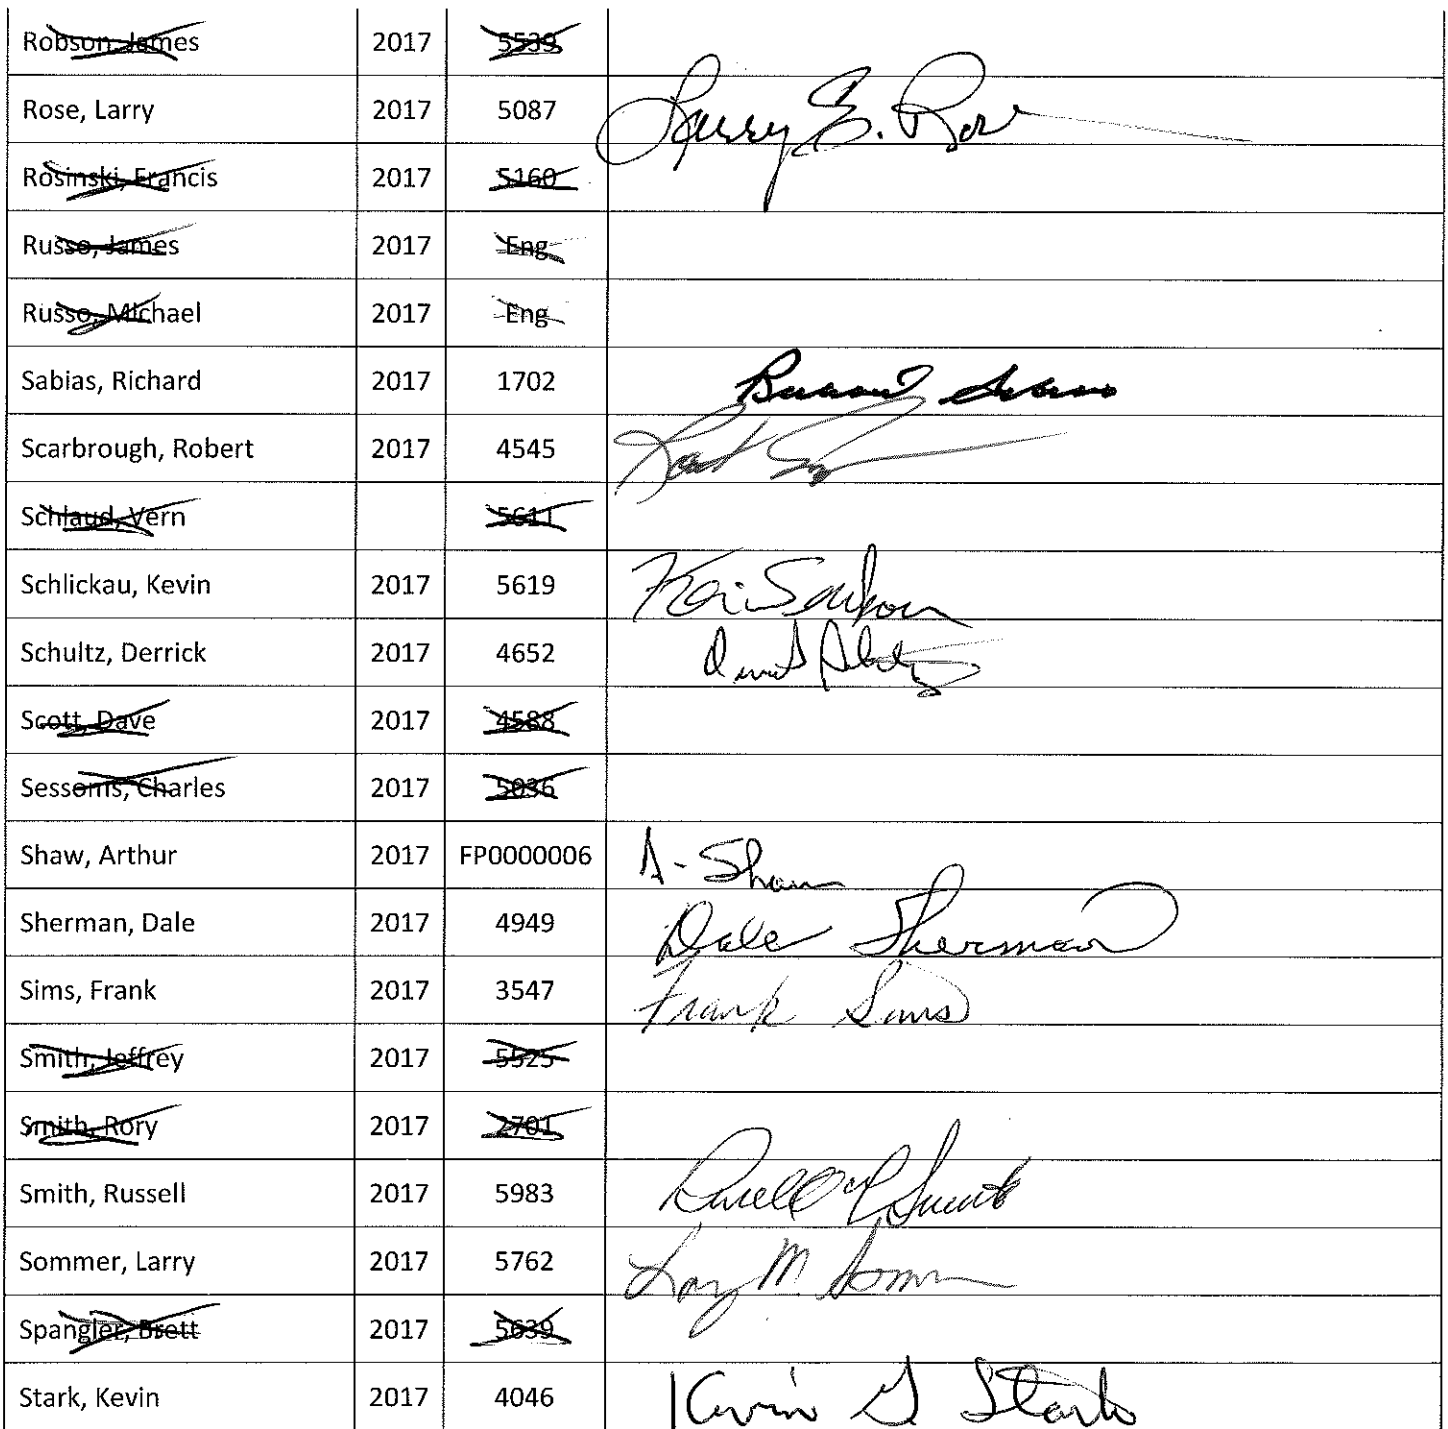 Robson, James 2017 5539
Rose, Larry 2017 5087 Larry E. Rose
Rosinski, Francis 2017 5160
Russo, James 2017 Eng
Russo, Michael 2017 Eng
Sabias, Richard 2017 1702
Scarbrough, Robert 2017 4545
Schlaud, Vern 5611
Schlickau, Kevin 2017 5619
Schultz, Derrick 2017 4652
Scott, Dave 2017 4588
Sessoms, Charles 2017 5036
Shaw, Arthur 2017 FP0000006 A-Shaw
Sherman, Dale 2017 4949 Dale Sherman
Sims, Frank 2017 3547 Frank Sims
Smith, Jeffrey 2017 5525
Smith, Rory 2017 2701
Smith, Russell 2017 5983
Sommer, Larry 2017 5762
Spangler, Brett 2017 5639
Stark, Kevin 2017 4046 Kevin G Stark